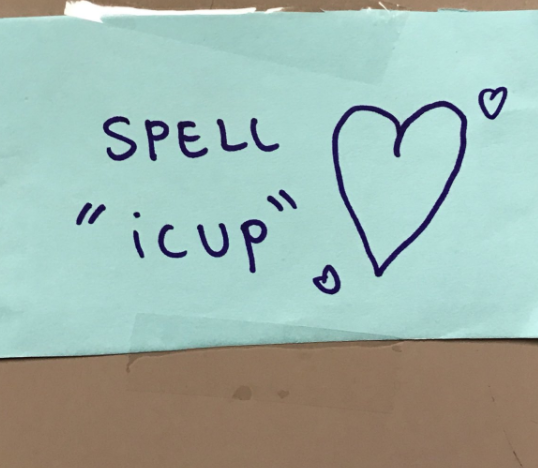 SPELL
"icup"